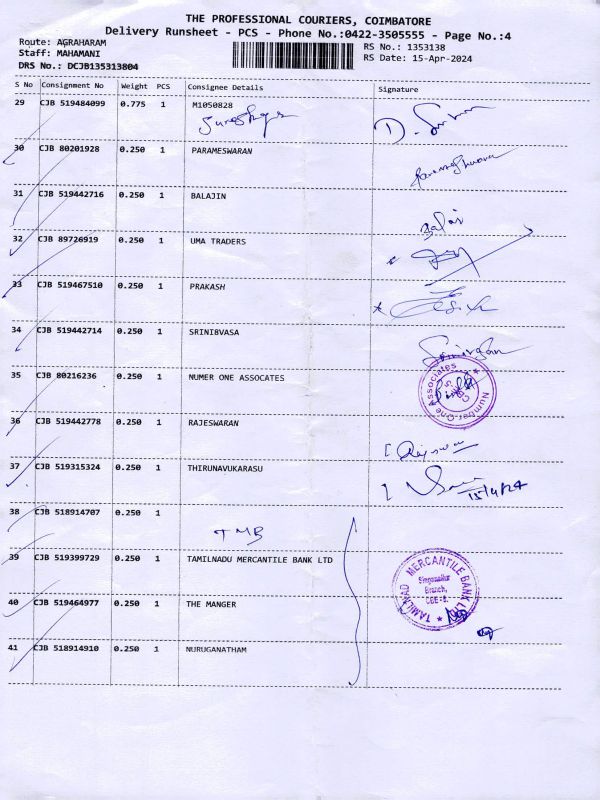 THE PROFESSIONAL COURIERS, COIMBATORE
Delivery Runsheet - PCS - Phone No.:0422-3505555 - Page No.:4
Route: AGRAHARAM
Staff: MAHAMANI
DRS No.: DCJB135313804
RS No.: 1353138
RS Date: 15-Apr-2024
S No Consignment No Weight PCS Consignee Details Signature
29 CJB 519484099 0.775 1 M1050828
30 CJB 80201928 0.250 1 PARAMESWARAN
31 CJB 519442716 0.250 1 BALAJIN
Balaji
32 CJB 89726919 0.250 1 UMA TRADERS
33 CJB 519467510 0.250 1 PRAKASH
34 CJB 519442714 0.250 1 SRINI8VASA
35 CJB 80216236 0.250 1 NUMER ONE ASSOCATES
Number-One Associates
36 CJB 519442778 0.250 1 RAJESWARAN
37 CJB 519315324 0.250 1 THIRUNAVUKARASU
15/4/24
38 CJB 518914707 0.250 1
TMB
39 CJB 519399729 0.250 1 TAMILNADU MERCANTILE BANK LTD
TAMILNAD MERCANTILE BANK LTD
Singanallur
Branch,
CBE-5.
40 CJB 519464977 0.250 1 THE MANGER
41 CJB 518914910 0.250 1 NURUGANATHAM